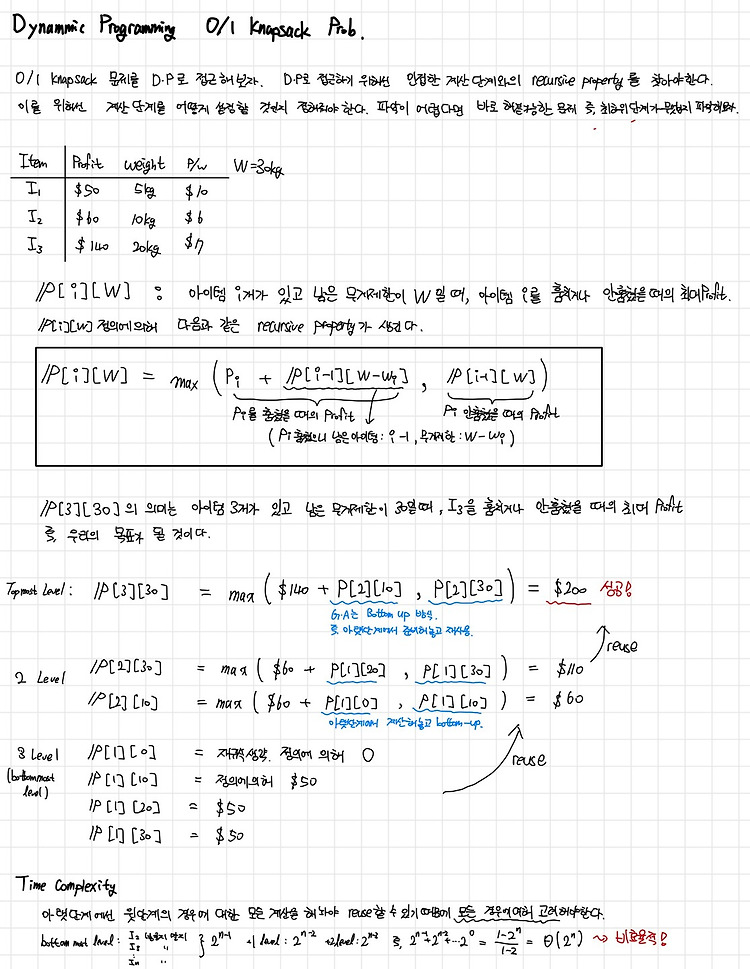 Dynammic Programming 0/1 Knapsack Prob.
0/1 Knapsack 문제를 D.P로 접근해보자. D.P로 접근하기 위해선 인접한 계산단계와의 recursive property를 찾아야한다.
이를 위해선 계산단계를 어떻게 설정할 것인지 정해줘야 한다. 파악이 어렵다면 바로 해결가능한 문제 즉, 최하위단계가 무엇인지 파악해보자.
Item Profit weight P/w W=30kg
I₁ $50 5kg $10
I₂ $60 10kg $6
I₃ $140 20kg $7
P[i][W] : 아이템 i개가 있고 남은 무게제한이 W일 때, 아이템 i를 훔치거나 안훔쳤을 때의 최대 Profit.
P[i][w] 정의에 의해 다음과 같은 recursive property가 생긴다.
P[i][W] = max ( Pᵢ + P[i-1][W-wᵢ] , P[i-1][W] )
Pᵢ를 훔쳤을 때의 Profit Pᵢ 안훔쳤을 때의 Profit
( Pᵢ 훔쳤으니 남은 아이템 : i-1, 무게제한 : W-wᵢ )
P[3][30]의 의미는 아이템 3개가 있고 남은 무게제한이 30일 때, I₃을 훔치거나 안훔쳤을 때의 최대 Profit
즉, 우리의 목표가 될 것이다.
Topmost Level: P[3][30] = max ( $140 + P[2][10] , P[2][30] ) = $200 성공!
G.A는 Bottom up 방식.
즉 아랫단계에서 준비해놓고 재사용.
reuse
2 Level P[2][30] = max ( $60 + P[1][20] , P[1][30] ) = $110
P[2][10] = max ( $60 + P[1][0] , P[1][10] ) = $60
아랫단계에서 계산해놓고 bottom-up.
3 Level P[1][0] = 재귀적생각. 정의에 의해 0
reuse
(bottommost level) P[1][10] = 정의에의해 $50
P[1][20] = $50
P[1][30] = $50
Time Complexity
아랫단계에선 윗단계의 경우에 대한 모든 계산을 해놔야 reuse할 수 있기 때문에 모든 경우에 대해 고려해야한다.
bottom most level : I₂ 훔칠지 말지 } 2ⁿ⁻¹ +1 level : 2ⁿ⁻² +2 level : 2ⁿ⁻³ 즉, 2ⁿ⁻¹+2ⁿ⁻²+...2⁰ = 1-2ⁿ/1-2 = Θ(2ⁿ) ~> 비효율적!
I₃ "
⋮
Iₙ "